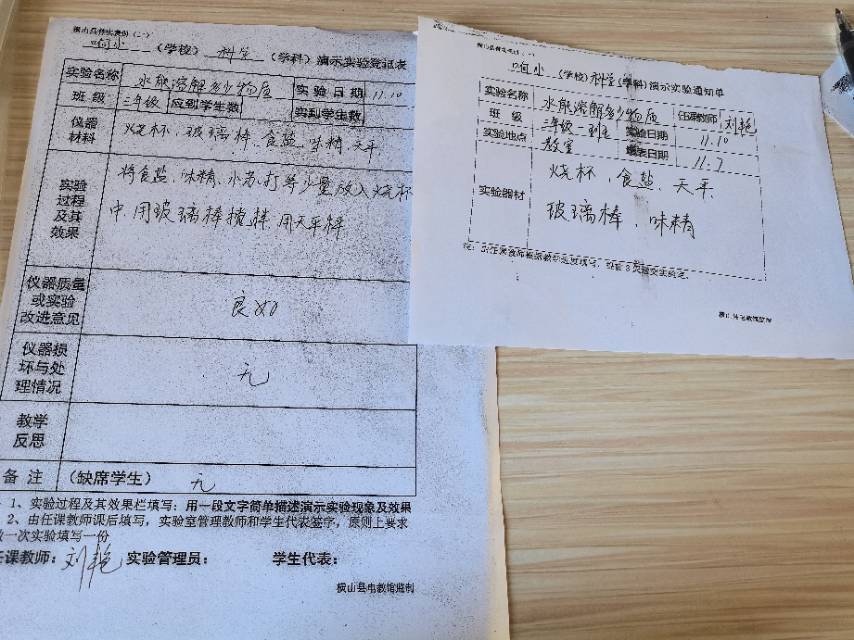 (学校) 科学 (学科) 演示实验登记表
实验名称 水能溶解多少物质 实验日期 11.10
班级 三年级 应到学生数 实到学生数
仪器材料 烧杯、玻璃棒、食盐、味精、天平
实验过程及其效果 将食盐、味精、小苏打等少量放入烧杯
中,用玻璃棒搅拌,用天平称
仪器质量或实验改进意见 良好
仪器损坏与处理情况 无
教学反思
备注 (缺席学生) 无
1、实验过程及其效果栏填写:用一段文字简单描述演示实验现象及效果
2、由任课教师课后填写,实验室管理教师和学生代表签字,原则上要求
一次实验填写一份
任课教师:刘艳 实验管理员: 学生代表:
横山县电教馆监制
(学校) 科学 (学科) 演示实验通知单
实验名称 水能溶解多少物质 任课教师 刘艳
班级 三年级 实验日期 11.10
实验地点 教室 填表日期 11.7
实验器材 烧杯、食盐、天平、
玻璃棒、味精
横山县电教馆监制